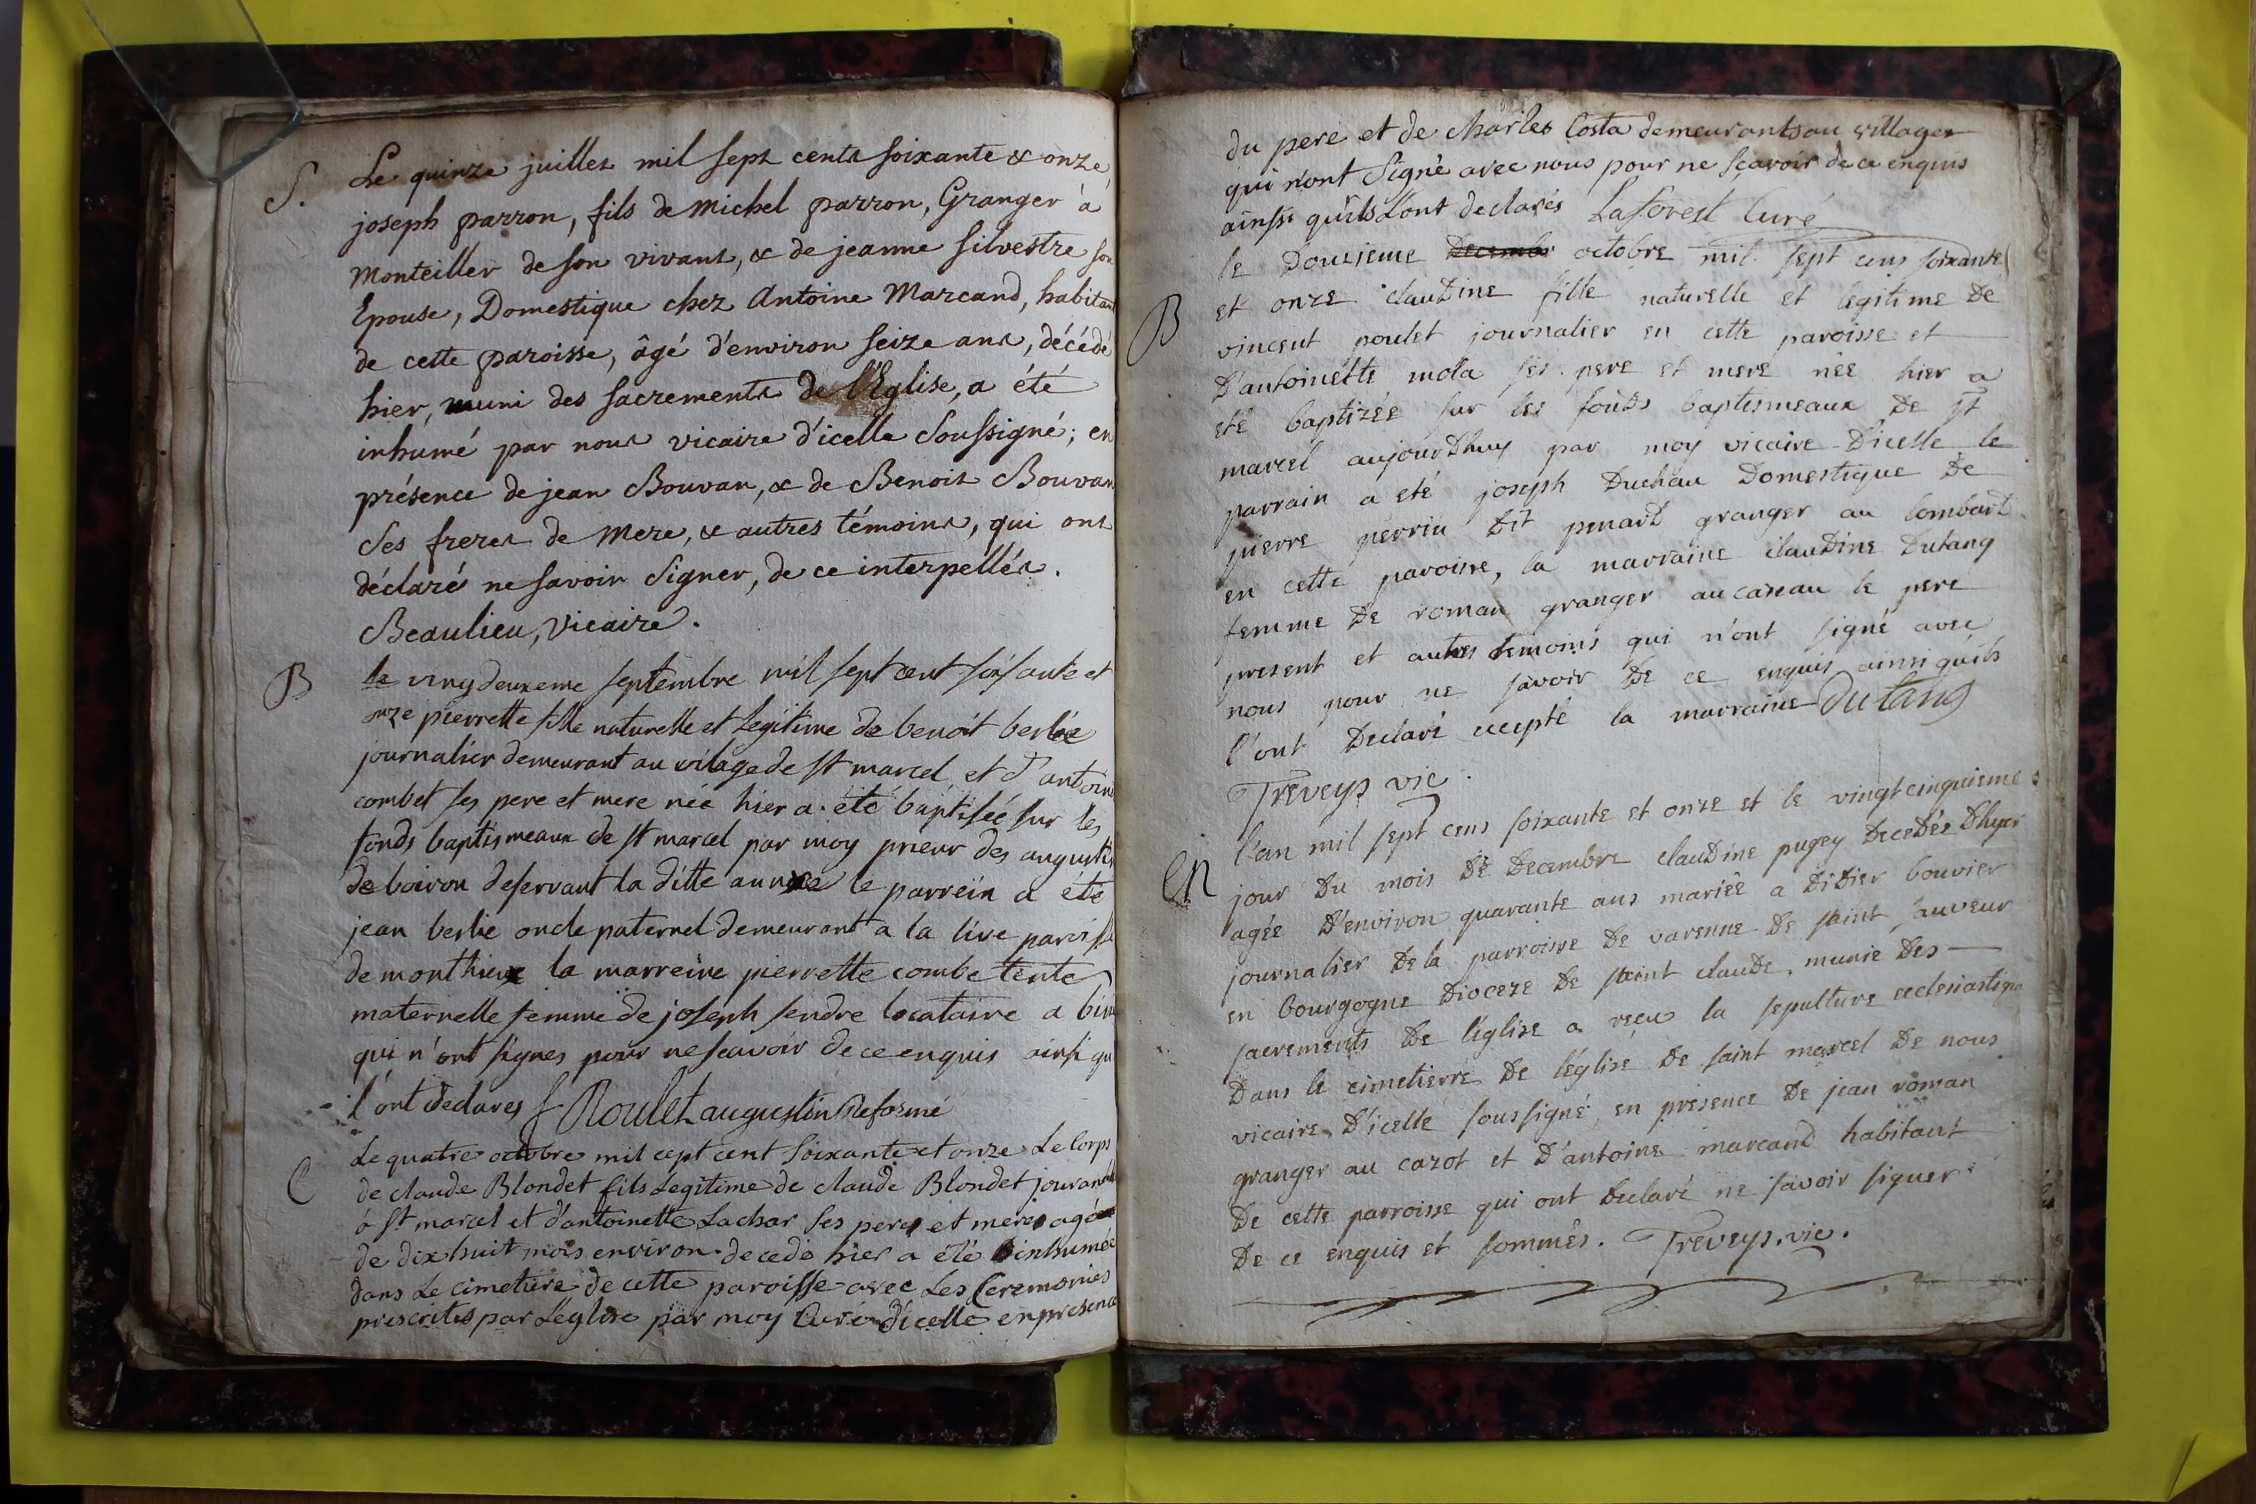 S. Le quinze juillet mil sept cents soixante & onze,
joseph parron, fils de Michel parron, Granger à
Monteiller de son vivant, & de jeanne silvestre son
Epouse, Domestique chez Antoine Marcand, habitant
de cette paroisse, âgé d'environ seize ans, décédé
hier, muni des sacrements de l'Eglise, a été
inhumé par nous vicaire d'icelle soussigné; en
présence de jean Bouvan, & de Benoit Bouvan
ses freres de Mere, & autres témoins, qui ont
déclaré ne savoir signer, de ce interpellés.
Beaulieu, Vicaire.
B le vingdeuxeme septembre mil sept cent soisante et
onze pierrette fille naturelle et legitime de benoit berlie
journalier demeurant au vilage de st marcel et d'antoine
combet ses pere et mere née hier a été baptisée sur les
fonds baptismeaux de st marcel par moy prieur des augustins
de boiron deservant la ditte annexe le parrein a été
jean berlie oncle paternel demeurant a la live paroisse
de monthieux la marreine pierrette combe tente
maternelle femme de joseph sendre locataire a
qui n'ont signes pour ne scavoir de ce enquis ainsi qu
l'ont declares f Roulet augustin Reformé
C Le quatre octobre mil cept cent soixante et onze Le Corps
de claude Blondet fils Legitime de claude Blondet
ò St marcel et d'antoinette Lachar ses peres et meres agée
de dix huit mois environ decede hier a été inhumée
dans Le cimetiere de cette paroisse avec Les Ceremonies
prescrites par L'église par moy Curé d'icelle en presence
du pere et de charles Costa demeurants au village
qui n'ont signé avec nous pour ne scavoir de ce enquis
ainssi qu'ils L'ont declarés Laforest Curé
B le Douzieme Decembr octobre mil sept cens soixante
et onze claudine fille naturelle et legitime de
vincent poulet journalier en cette paroisse et
d'antoinette mola ses pere et mere née hier a
eté baptizée sur les fonds baptismeaux de st
marcel aujourdhuy par moy vicaire d'icelle le
parrain a eté joseph Duchau Domestique de
pierre perrin dit penard granger au lombard
en cette paroisse, la marraine claudine Dutang
femme de roman granger au caseau le pere
present et autres temoins qui n'ont signé avec
nous pour ne savoir de ce enquis ainsi quils
l'ont declaré excepté la marraine Dutang
Treveys vic.
En l'an mil sept cens soixante et onze et le vingtcinquieme
jour du mois de decembre claudine pugey decedée dhyer
agée d'environ quarante ans mariée a didier bouvier
journalier de la parroisse de varenne de saint sauveur
en bourgogne dioceze de saint claude, munie des
sacrements de l'église a reçu la sepulture ecclesiastique
dans le cimetierre de l'église de saint marcel de nous
vicaire d'icelle soussigné, en presence de jean roman
granger au cazot et d'antoine marcand habitant
de cette parroisse qui ont declaré ne savoir signer
de ce enquis et sommés. Treveys. vic.